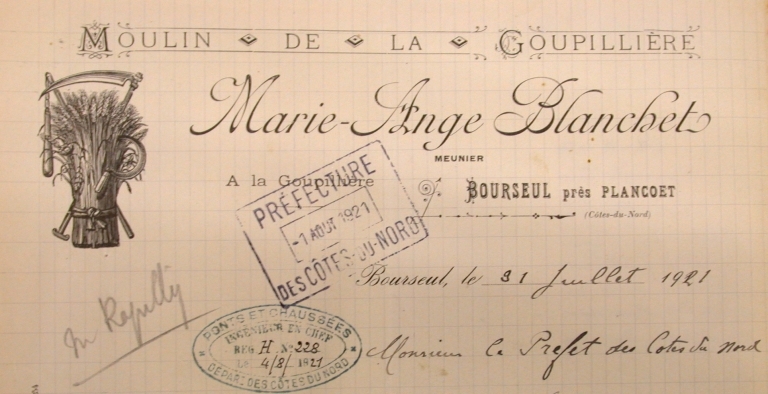 MOULIN DE LA GOUPILLIÈRE
Marie-Ange Blanchet
MEUNIER
A la Goupillière
BOURSEUL près PLANCOET
(Côtes-du-Nord)
PRÉFECTURE
-1 AOUT 1921
DES CÔTES-DU-NORD
Bourseul, le 31 Juillet 1921
PONTS ET CHAUSSÉES
INGÉNIEUR EN CHEF
REG H N° 228
LE 4/8 1921
DÉPART. DES CÔTES DU NORD
Monsieur le Prefet des Cotes du Nord